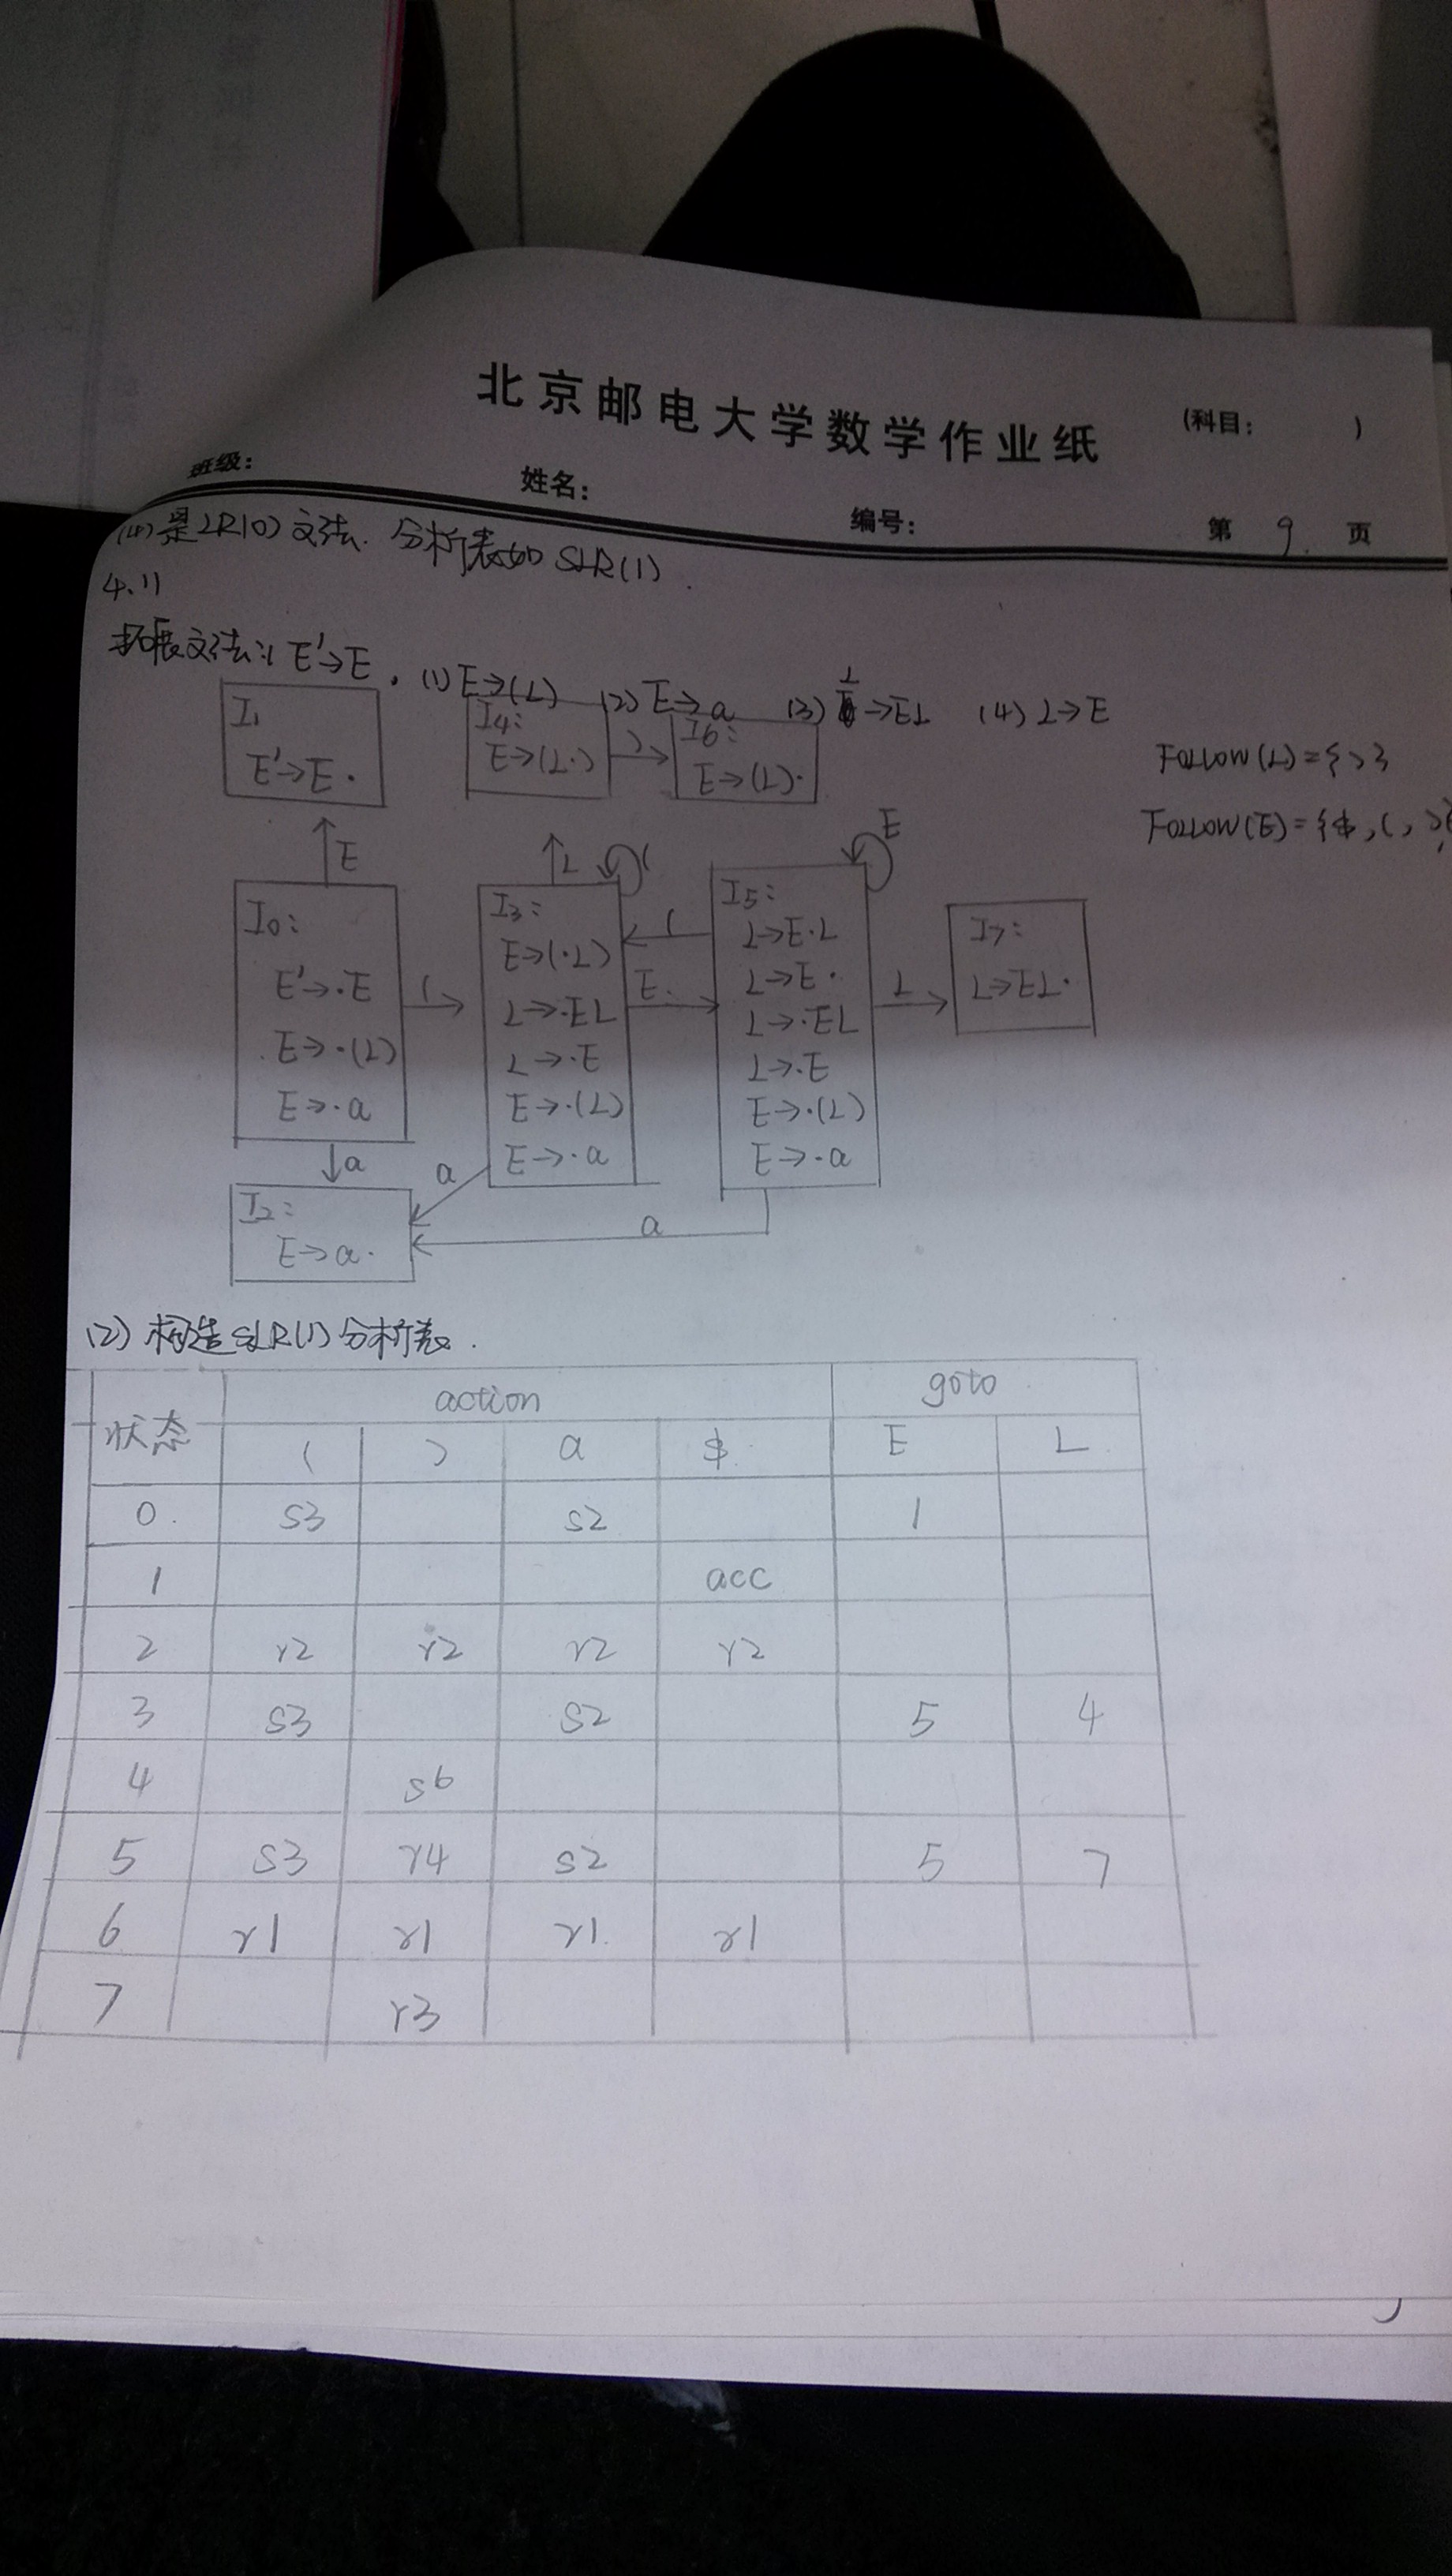 北京邮电大学数学作业纸
(科目: )
班级:
姓名:
编号:
第 9. 页
(4) 是LR(0)文法. 分析表如SLR(1).
4.11
拓展文法: E'→E. (1) E→(L) (2) E→a (3) L→EL (4) L→E
Follow(L)={)}
Follow(E)={$,(,)
I1
E'→E·
I4:
E→(L·)
)
I6:
E→(L)·
E
L
(
E
I0:
E'→·E
E→·(L)
E→·a
(
I3:
E→(·L)
L→·EL
L→·E
E→·(L)
E→·a
(
E
I5:
L→E·L
L→E·
L→·EL
L→·E
E→·(L)
E→·a
L
I7:
L→EL·
a
a
a
I2:
E→a·
(2) 构造SLR(1)分析表.
状态 action goto
( ) a $ E L
0 s3 s2 1
1 acc
2 r2 r2 r2 r2
3 s3 s2 5 4
4 s6
5 s3 r4 s2 5 7
6 r1 r1 r1 r1
7 r3